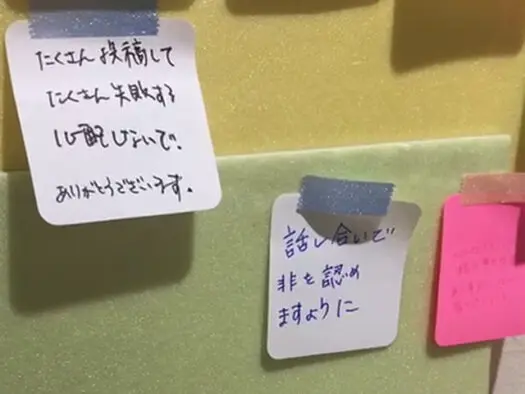 たくさん投稿して
たくさん失敗する
心配しないで。
ありがとうございます。
話し合いで
非を認め
ますように